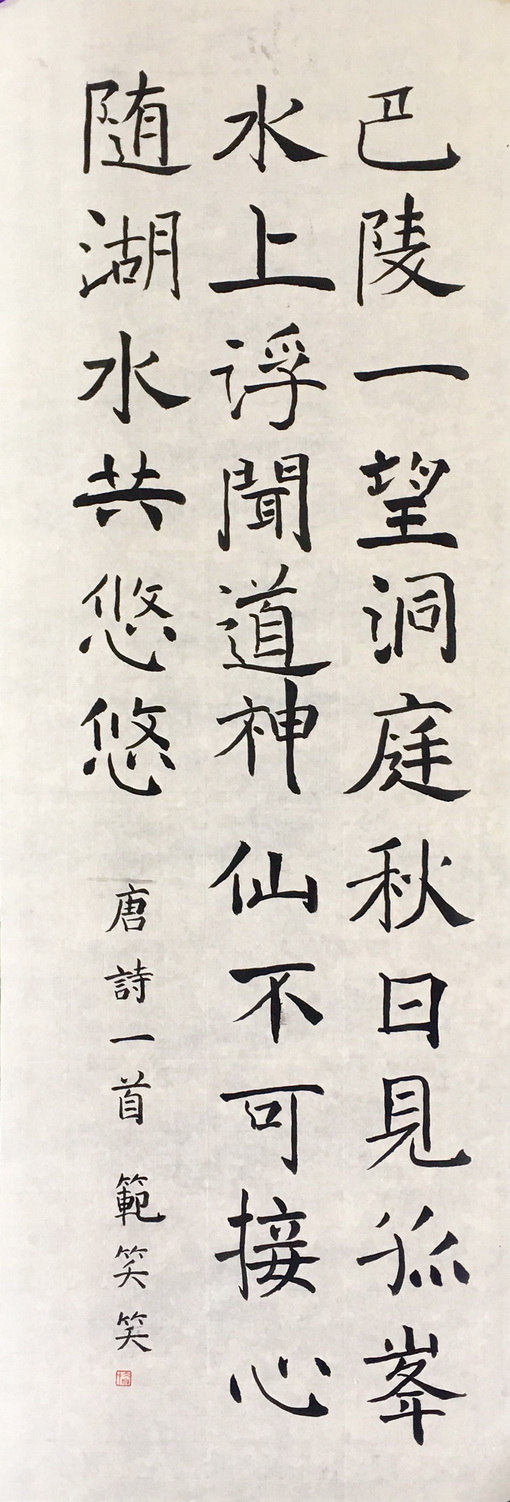 巴陵一望洞庭秋日見孤峯
水上浮聞道神仙不可接心
随湖水共悠悠
唐詩一首 範笑笑